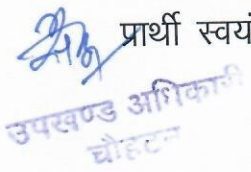 प्रार्थी स्वयं
उपखण्ड अधिकारी
चौहटन